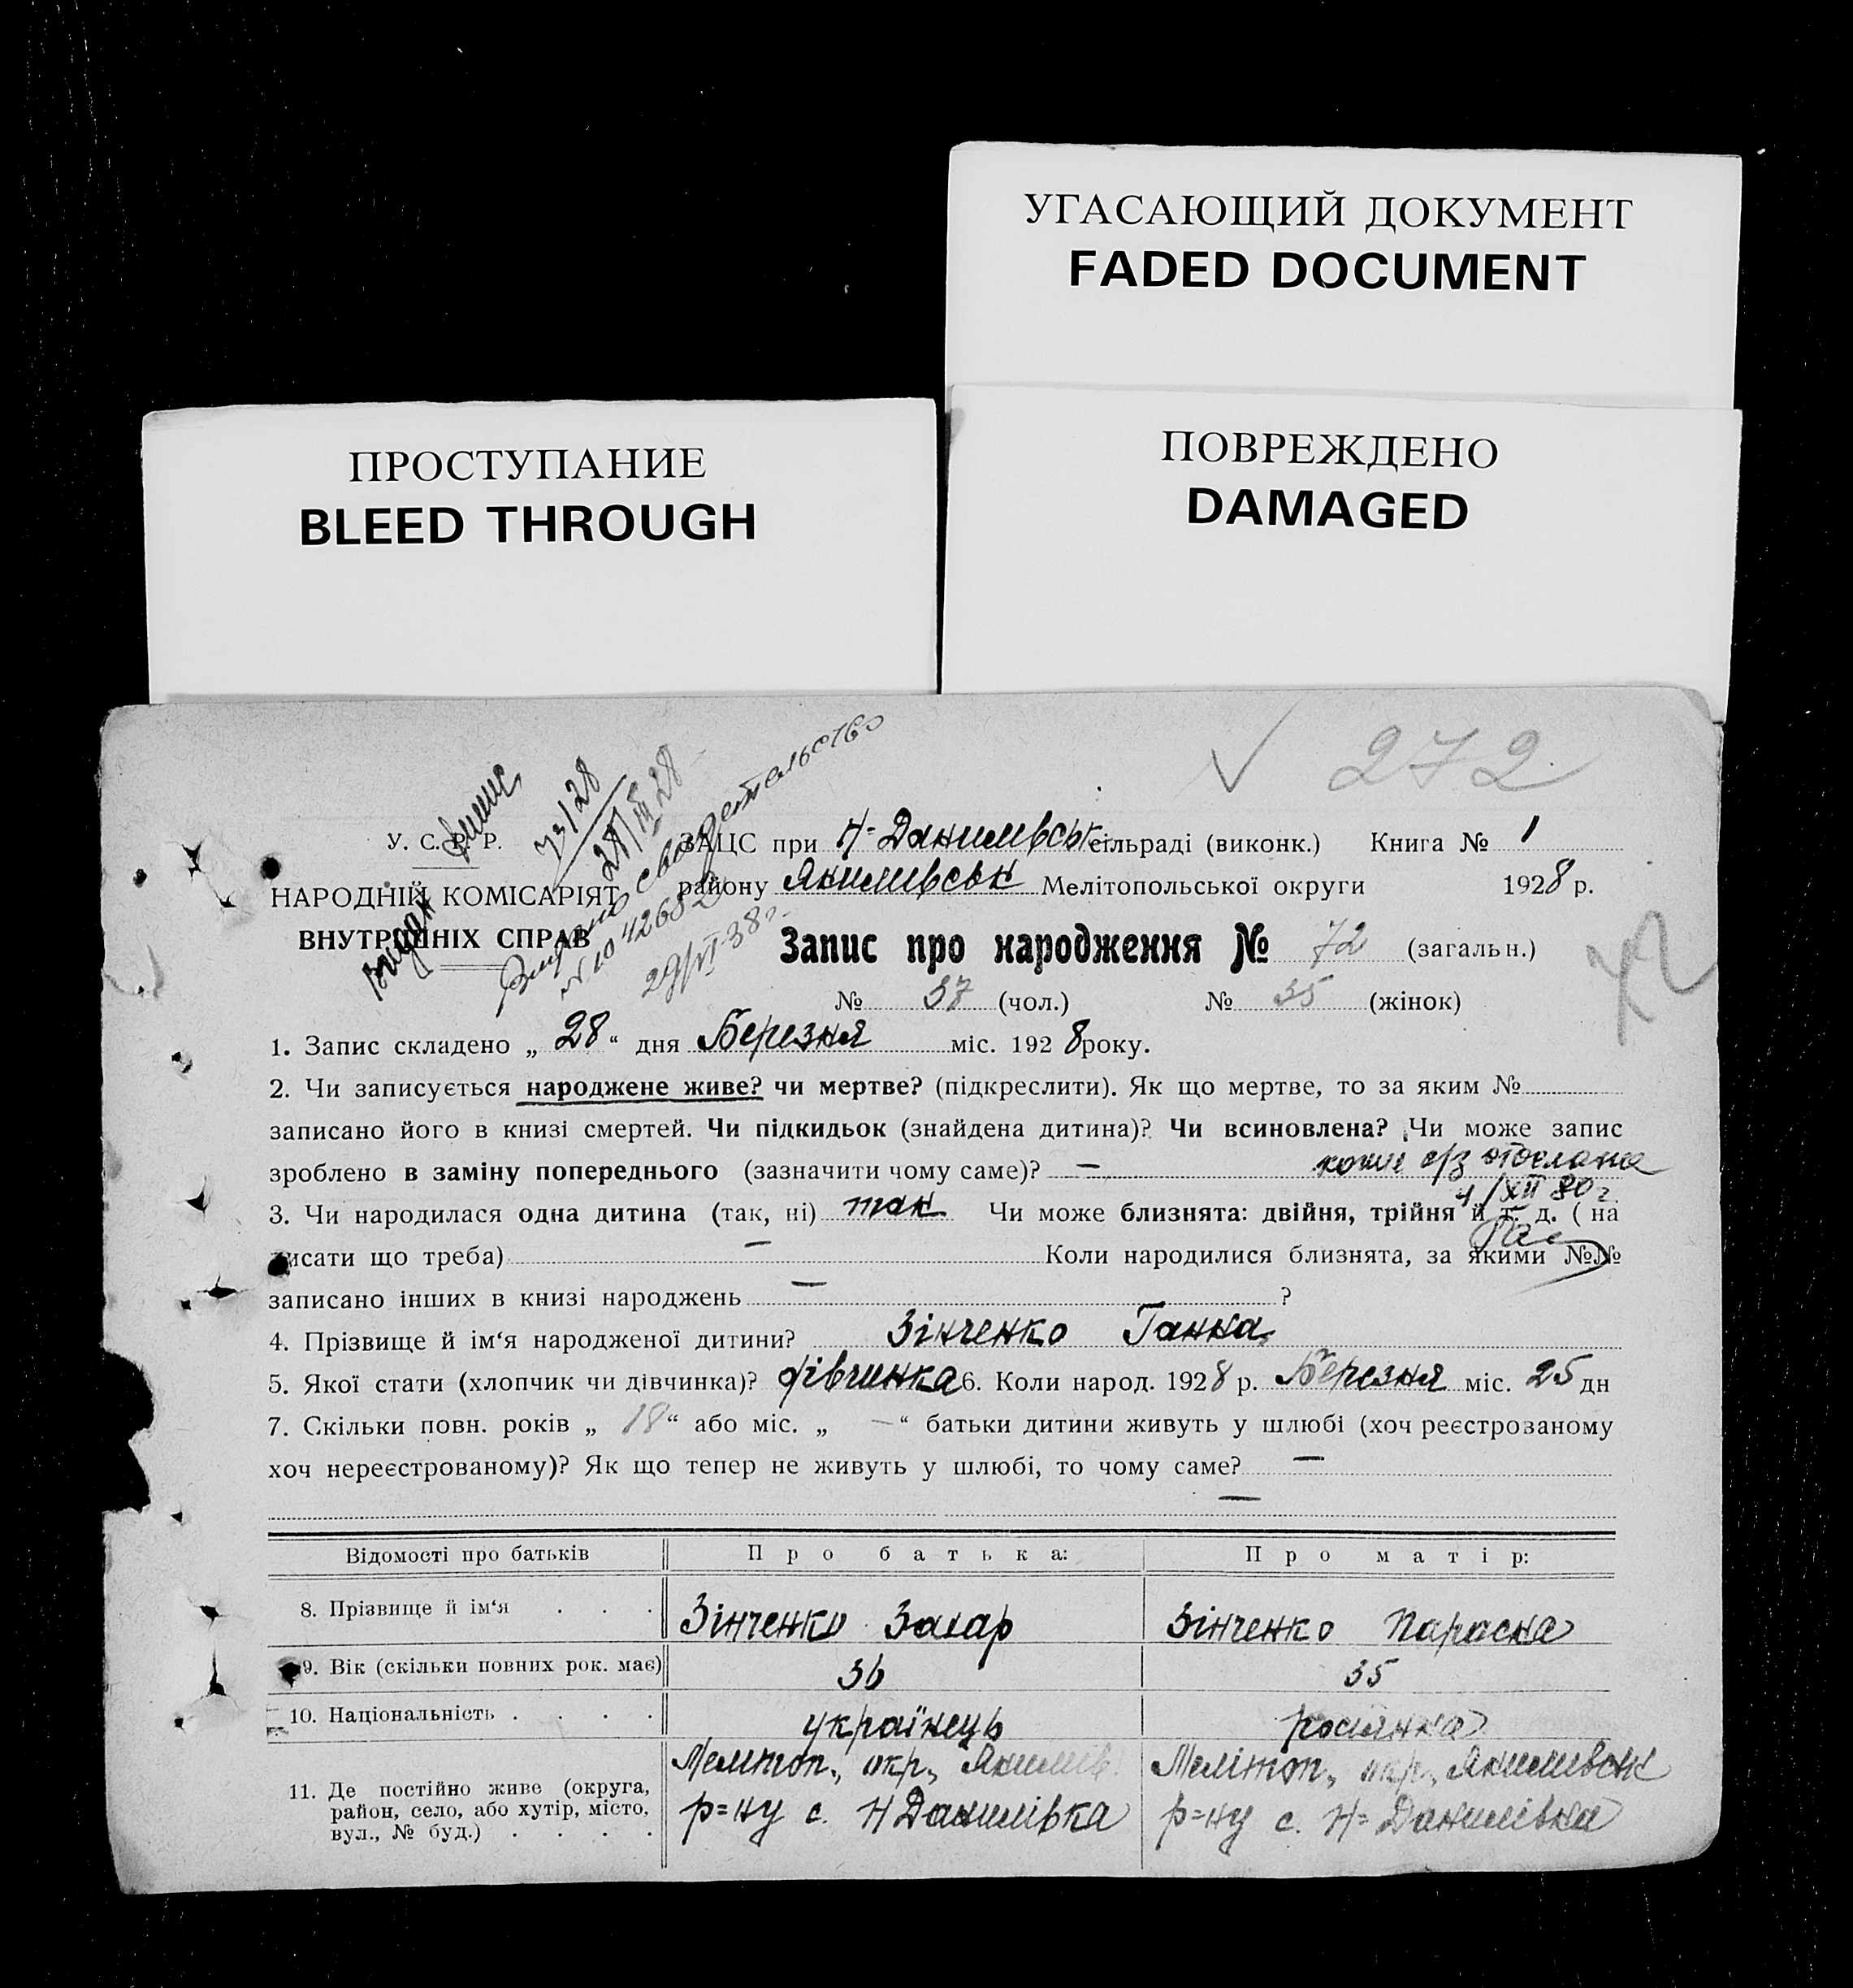 УГАСАЮЩИЙ ДОКУМЕНТ
FADED DOCUMENT
ПРОСТУПАНИЕ
BLEED THROUGH
ПОВРЕЖДЕНО
DAMAGED
272
Видан випис
73/28
28/III 28
Выдано свидетельство
№ 10 42682
29/VI-38г.
У. С. Р. Р.
НАРОДНІЙ КОМІСАРІЯТ
ВНУТРІШНІХ СПРАВ
ЗАЦС при Н-Данилівськ сільраді (виконк.) Книга № 1
району Якимівськ Мелітопольської округи 1928 р.
Запис про народження № 72 (загальн.)
№ 37 (чол.) № 35 (жінок)
1. Запис складено „ 28 “ дня Березня міс. 1928 року.
2. Чи записується народжене живе? чи мертве? (підкреслити). Як що мертве, то за яким №
записано його в книзі смертей. Чи підкидьок (знайдена дитина)? Чи всиновлена? Чи може запис
зроблено в заміну попереднього (зазначити чому саме)? —
копия с/з отослана
4/XII 80 г.
3. Чи народилася одна дитина (так, ні) так Чи може близнята: двійня, трійня й т. д. ( на
писати що треба) — Коли народилися близнята, за якими №№
записано інших в книзі народжень — ?
4. Прізвище й ім‘я народженої дитини? Зінченко Ганна
5. Якої стати (хлопчик чи дівчинка)? дівчинка 6. Коли народ. 1928 р. Березня міс. 25 дн
7. Скільки повн. років „ 18 “ або міс. „ — “ батьки дитини живуть у шлюбі (хоч реєстрованому
хоч нереєстрованому)? Як що тепер не живуть у шлюбі, то чому саме? —
—
Відомості про батьків Про батька: Про матір:
8. Прізвище й ім‘я . . . Зінченко Захар Зінченко Параска
9. Вік (скільки повних рок. має) 36 35
10. Національність . . . . українець росіянка
11. Де постійно живе (округа, район, село, або хутір, місто, вул., № буд.) . . . .
Мелітоп., окр., Якимів. Мелітоп., окр., Якимівськ
р=ну с. Н Данилівка р=ну с. Н=Данилівка